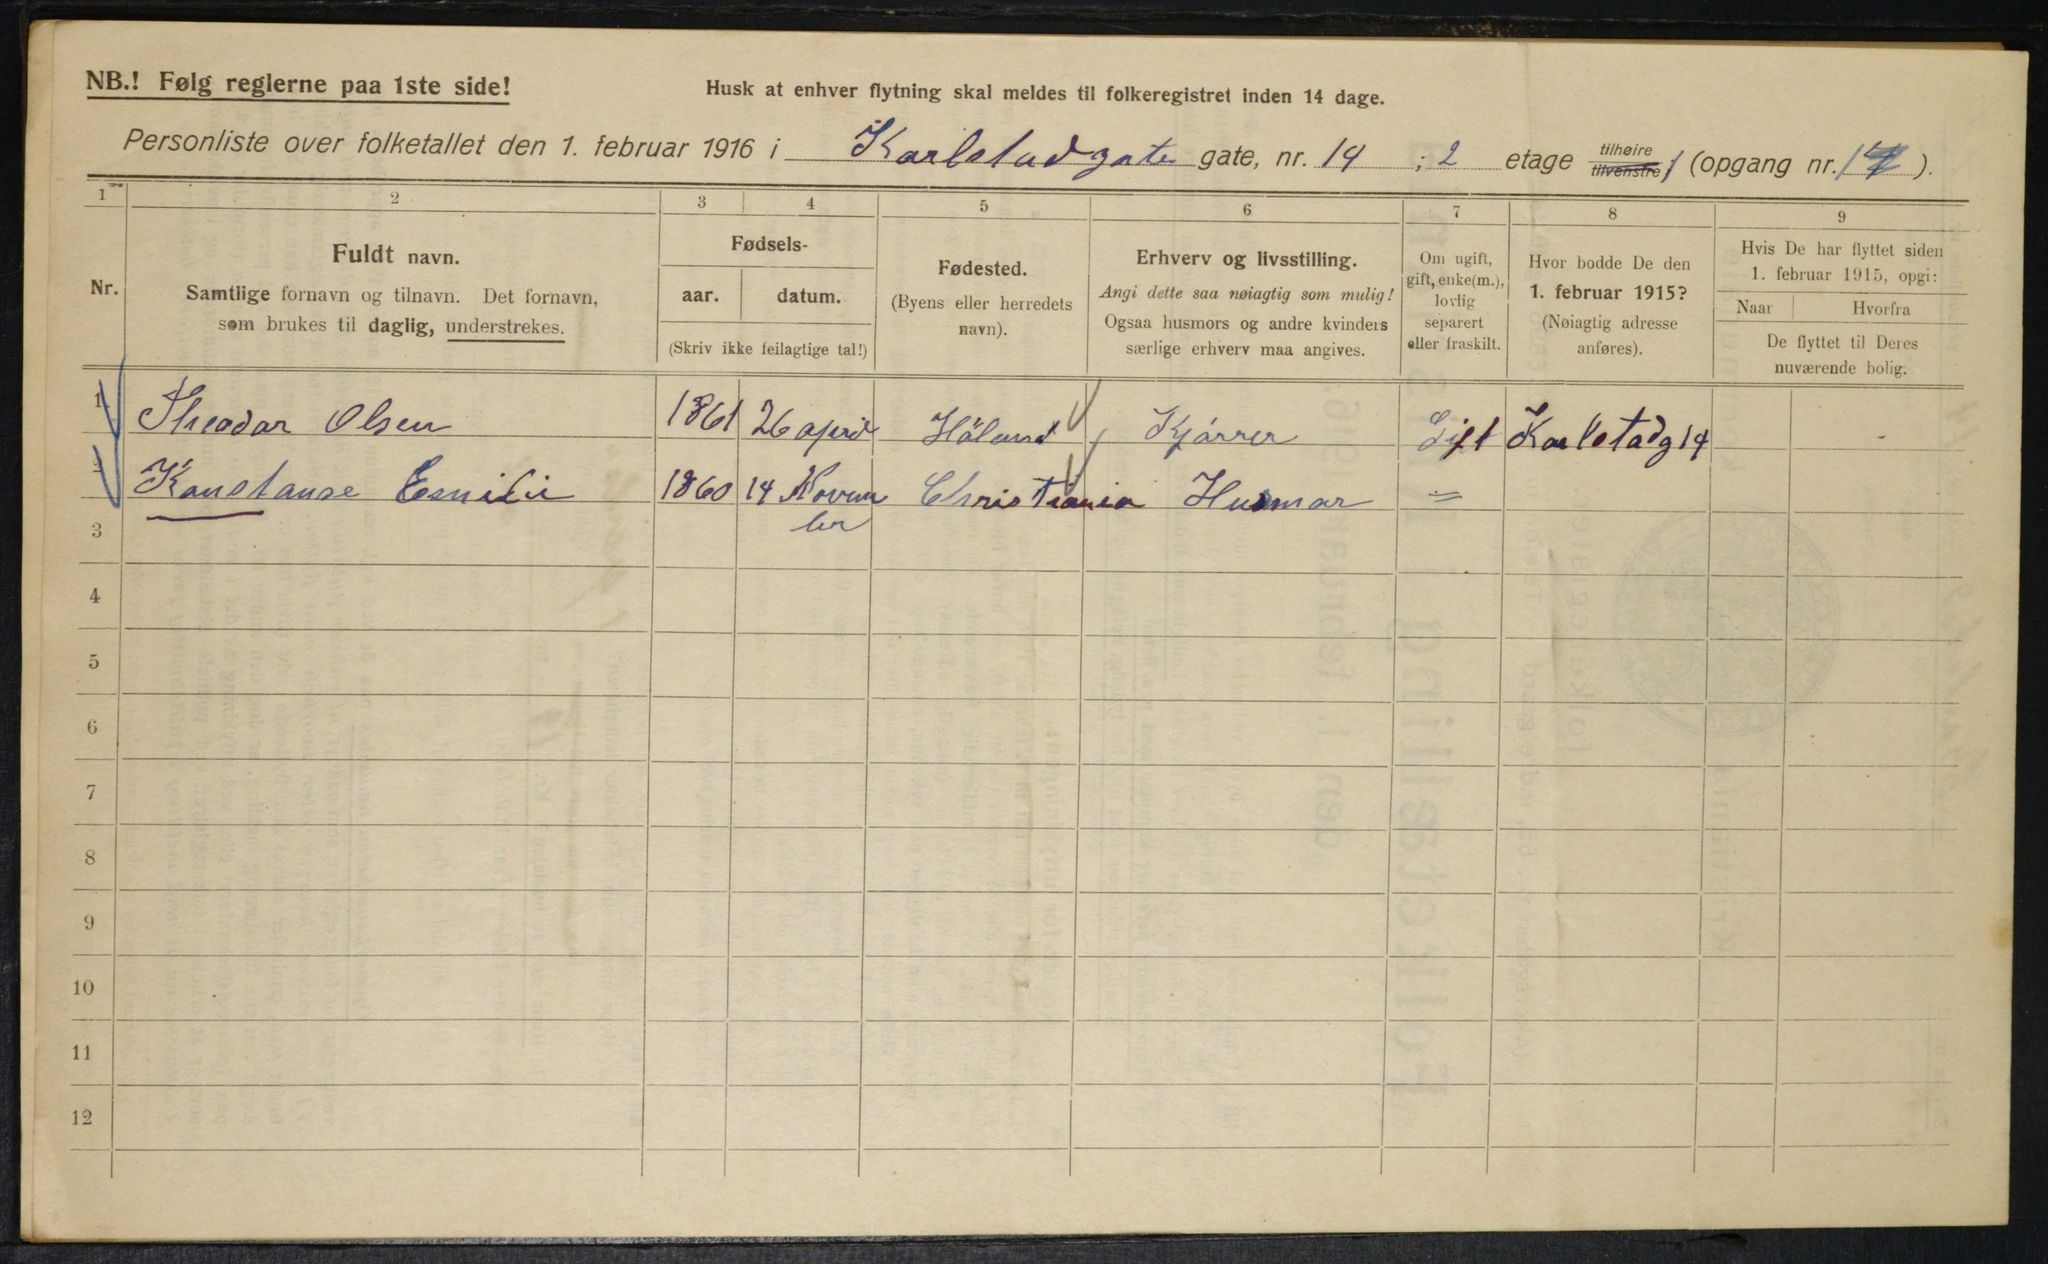 NB.! Følg reglerne paa 1ste side!
Husk at enhver flytning skal meldes til folkeregistret inden 14 dage.
Personliste over folketallet den 1. februar 1916 i Karlstadgate gate, nr. 14 ; 2 etage tilhøire tilvenstre / (opgang nr. 1).
1 2 3 4 5 6 7 8 9
Nr.
Fuldt navn.
Samtlige fornavn og tilnavn. Det fornavn,
som brukes til daglig, understrekes.
Fødsels-
aar. datum.
(Skriv ikke feilagtige tal!)
Fødested.
(Byens eller herredets
navn).
Erhverv og livsstilling.
Angi dette saa nøiagtig som mulig!
Ogsaa husmors og andre kvinders
særlige erhverv maa angives.
Om ugift,
gift, enke(m.),
lovlig
separert
eller fraskilt.
Hvor bodde De den
1. februar 1915?
(Nøiagtig adresse
anføres).
Hvis De har flyttet siden
1. februar 1915, opgi:
Naar Hvorfra
De flyttet til Deres
nuværende bolig.
1 Theodor Olsen 1861 26 april Höland Kjörrer Gift Karlstadg 14
2 Konstanse Emilie 1860 14 Novem Christiania Husmor =
ber
3
4
5
6
7
8
9
10
11
12